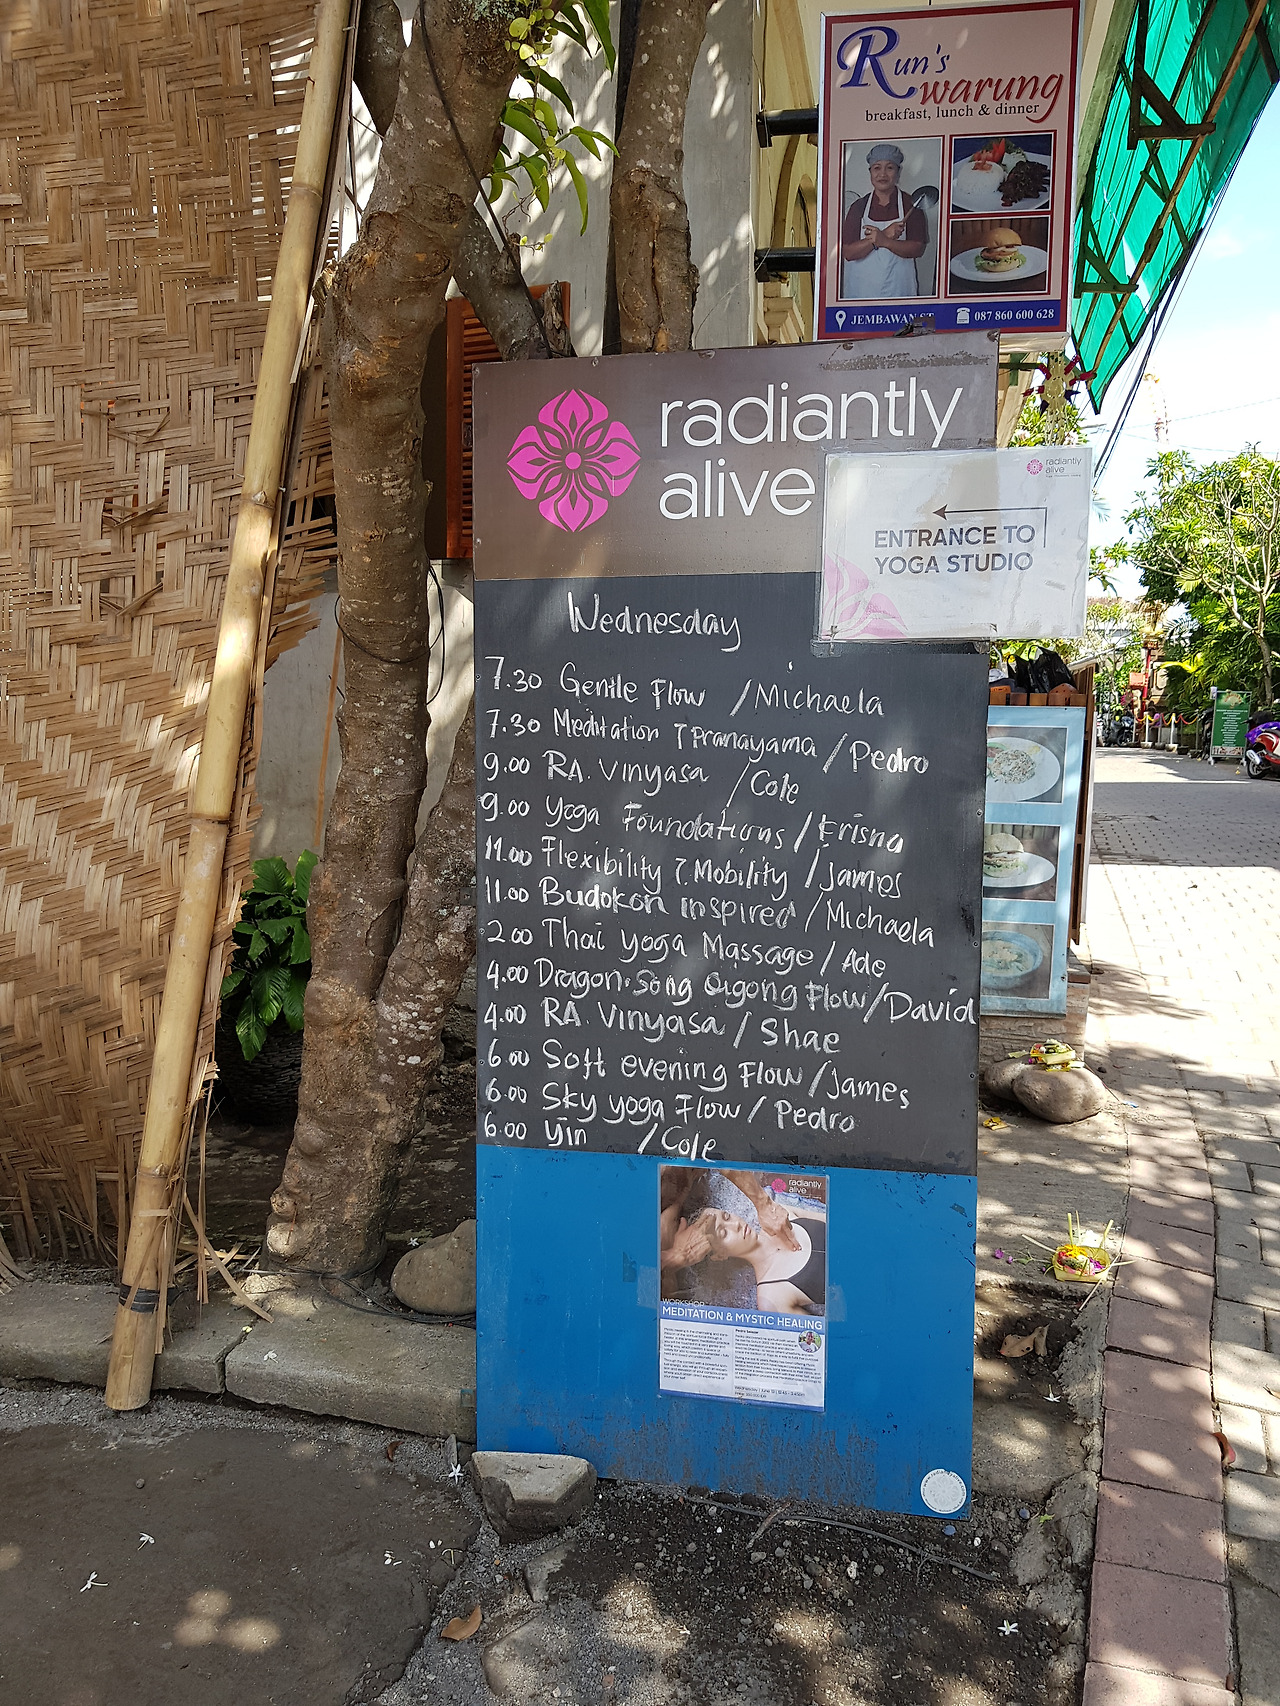 Run's
warung
breakfast, lunch & dinner
JEMBAWAN ST 087 860 600 628
radiantly
alive
radiantly
alive
ENTRANCE TO
YOGA STUDIO
Wednesday
7.30 Gentle Flow / Michaela
7.30 Meditation & Pranayama / Pedro
9.00 RA. Vinyasa / Cole
9.00 Yoga Foundations / Krisna
11.00 Flexibility & Mobility / James
11.00 Budokon inspired / Michaela
2.00 Thai yoga Massage / Ade
4.00 Dragon.Song Qigong Flow / David
4.00 RA. Vinyasa / Shae
6.00 Soft evening Flow / James
6.00 Sky yoga Flow / Pedro
6.00 Yin / Cole
radiantly
alive
WORKSHOP
MEDITATION & MYSTIC HEALING